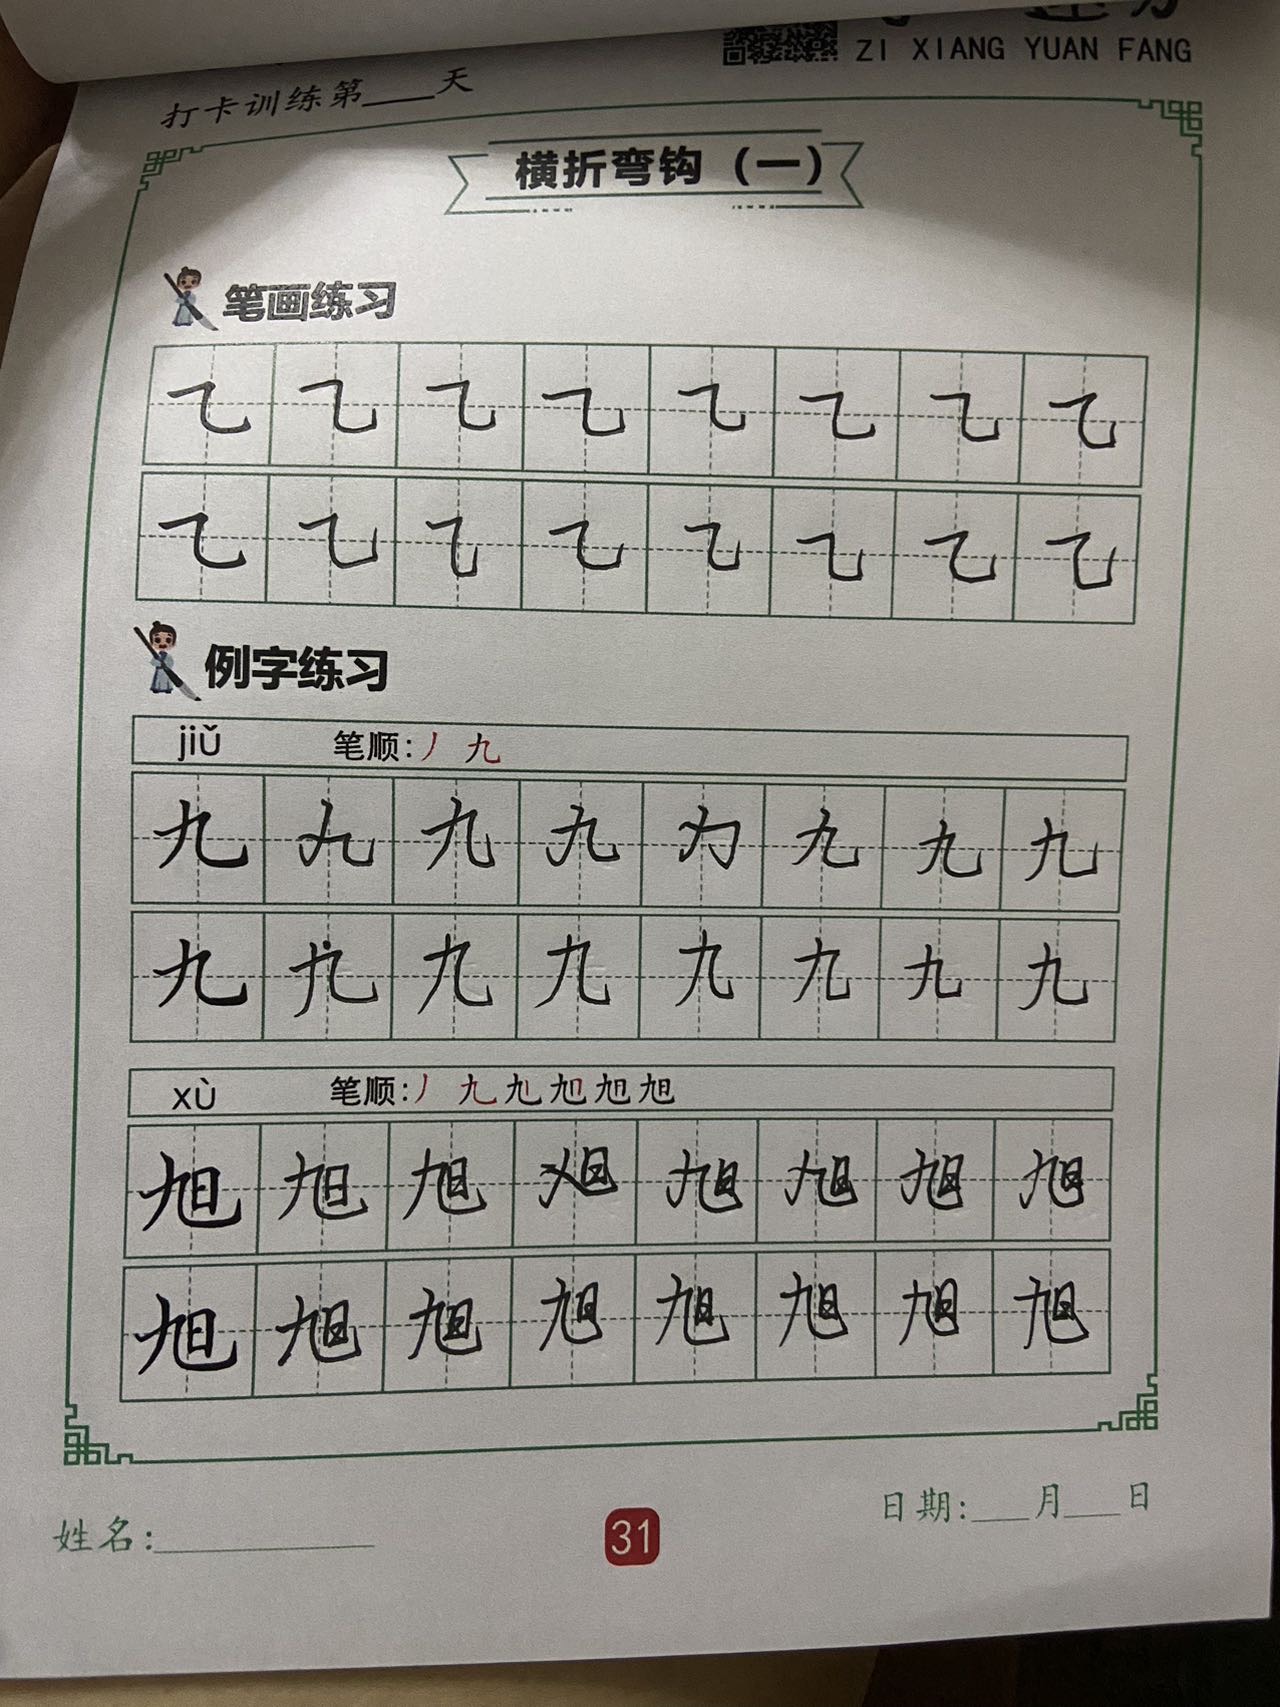 ZI XIANG YUAN FANG
打卡训练第____天
横折弯钩（一）
笔画练习
㇈ ㇈ ㇈ ㇈ ㇈ ㇈ ㇈ ㇈
㇈ ㇈ ㇈ ㇈ ㇈ ㇈ ㇈ ㇈
例字练习
jiǔ 笔顺：丿 九
九 九 九 九 九 九 九 九
九 九 九 九 九 九 九 九
xù 笔顺：丿 九 旭 旭 旭 旭
旭 旭 旭 旭 旭 旭 旭 旭
旭 旭 旭 旭 旭 旭 旭 旭
姓名：____________
31
日期：____月____日